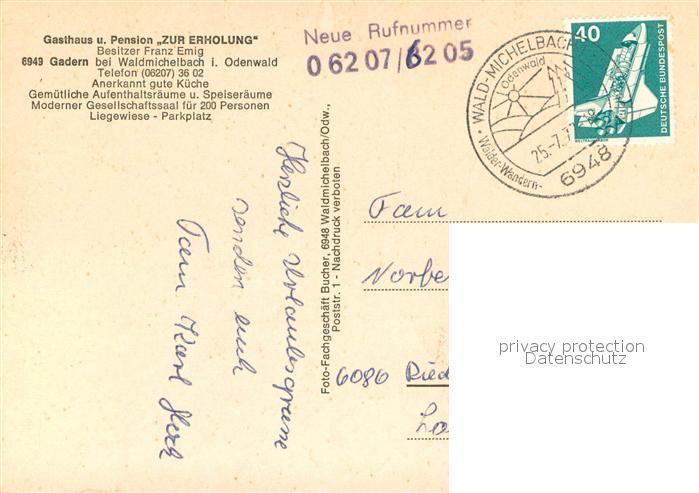 Gasthaus u. Pension „ZUR ERHOLUNG"
Besitzer Franz Emig
6949 Gadern bei Waldmichelbach i. Odenwald
Telefon (06207) 36 02
Anerkannt gute Küche
Gemütliche Aufenthaltsräume u. Speiseräume
Moderner Gesellschaftssaal für 200 Personen
Liegewiese - Parkplatz
Neue Rufnummer
0 62 07/6 2 05
WALD-MICHELBACH
Odenwald
25.-7.77
Wälder-Wandern-
6948
40
DEUTSCHE BUNDESPOST
Herzliche Urlaubsgrüsse
senden euch
Fam Karl
Foto-Fachgeschäft Bucher, 6948 Waldmichelbach/Odw.,
Poststr. 1 - Nachdruck verboten
Fam
Norbe
6086 Ried
privacy protection
Datenschutz